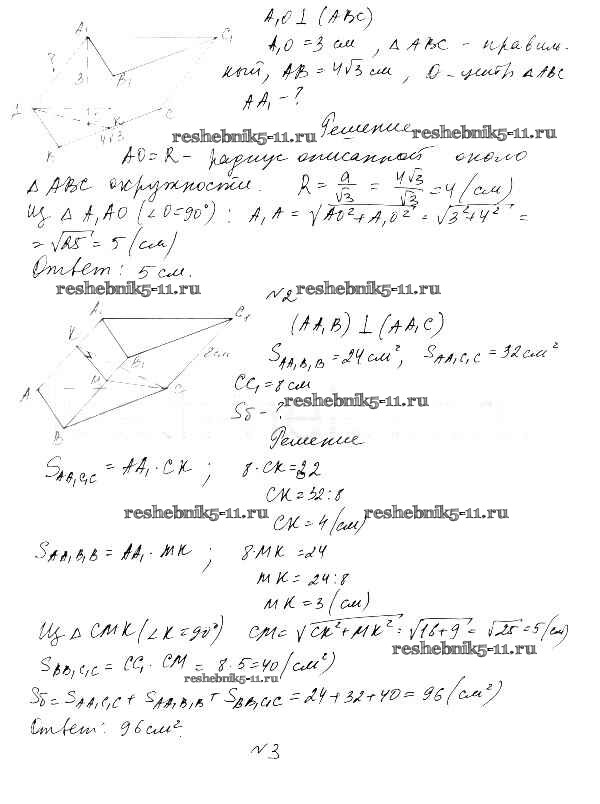 A₁O ⊥ (ABC)
A₁O = 3 см, △ ABC - правиль-
ный, AB = 4√3 см, O - центр △ABC
AA₁ - ?
Решение
reshebnik5-11.ru reshebnik5-11.ru
AO = R - радиус описанной около
△ ABC окружности. R = a/√3 = 4√3/√3 = 4 (см)
Из △ A₁AO (∠O=90°): A₁A = √(AO² + A₁O²) = √(3²+4²) =
= √25 = 5 (см)
Ответ: 5 см.
reshebnik5-11.ru reshebnik5-11.ru
№2
(AA₁B) ⊥ (AA₁C)
S_AA₁B₁B = 24 см², S_AA₁C₁C = 32 см²
CC₁ = 8 см
reshebnik5-11.ru
Sб - ?
Решение
S_AA₁C₁C = AA₁ · CK; 8 · CK = 32
CK = 32:8
reshebnik5-11.ru reshebnik5-11.ru
CK = 4 (см)
S_AA₁B₁B = AA₁ · MK; 8 · MK = 24
MK = 24:8
MK = 3 (см)
Из △ CMK (∠K = 90°) CM = √(CK² + MK²) = √(16+9) = √25 = 5 (см)
reshebnik5-11.ru
S_BB₁C₁C = CC₁ · CM = 8 · 5 = 40 (см²)
reshebnik5-11.ru
Sб = S_AA₁C₁C + S_AA₁B₁B + S_BB₁C₁C = 24 + 32 + 40 = 96 (см²)
Ответ: 96 см².
№3
A₁
C₁
B₁
3
?
A
C
K
4√3
B
A₁
C₁
K
B₁
8 см
M
A
C
B